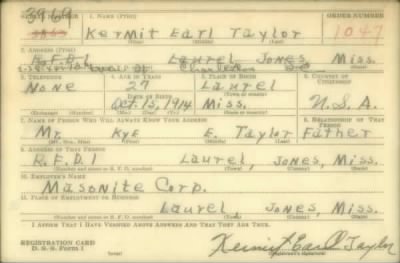 3969
1. NAME (Print) ORDER NUMBER
Kermit Earl Taylor 1047
(First) (Middle) (Last)
2. ADDRESS (Print)
R.F.D.1 Laurel, Jones, Miss.
Charleston
3. TELEPHONE 4. AGE IN YEARS 5. PLACE OF BIRTH 6. COUNTRY OF CITIZENSHIP
None 27 Laurel
DATE OF BIRTH (Town or county)
Oct. 15, 1914 Miss. U.S.A.
(Exchange) (Number) (Mo.) (Day) (Yr.) (State or country)
7. NAME OF PERSON WHO WILL ALWAYS KNOW YOUR ADDRESS 8. RELATIONSHIP OF THAT PERSON
Mr. Kye E. Taylor Father
(Mr., Mrs., Miss) (First) (Middle) (Last)
9. ADDRESS OF THAT PERSON
R.F.D.1 Laurel, Jones, Miss.
(Number and street or R. F. D. number) (Town) (County) (State)
10. EMPLOYER'S NAME
Masonite Corp.
11. PLACE OF EMPLOYMENT OR BUSINESS
Laurel, Jones, Miss.
(Number and street or R. F. D. number) (Town) (County) (State)
I AFFIRM THAT I HAVE VERIFIED ABOVE ANSWERS AND THAT THEY ARE TRUE.
REGISTRATION CARD
D. S. S. Form 1 (over) Kermit Earl Taylor
(Registrant's signature)